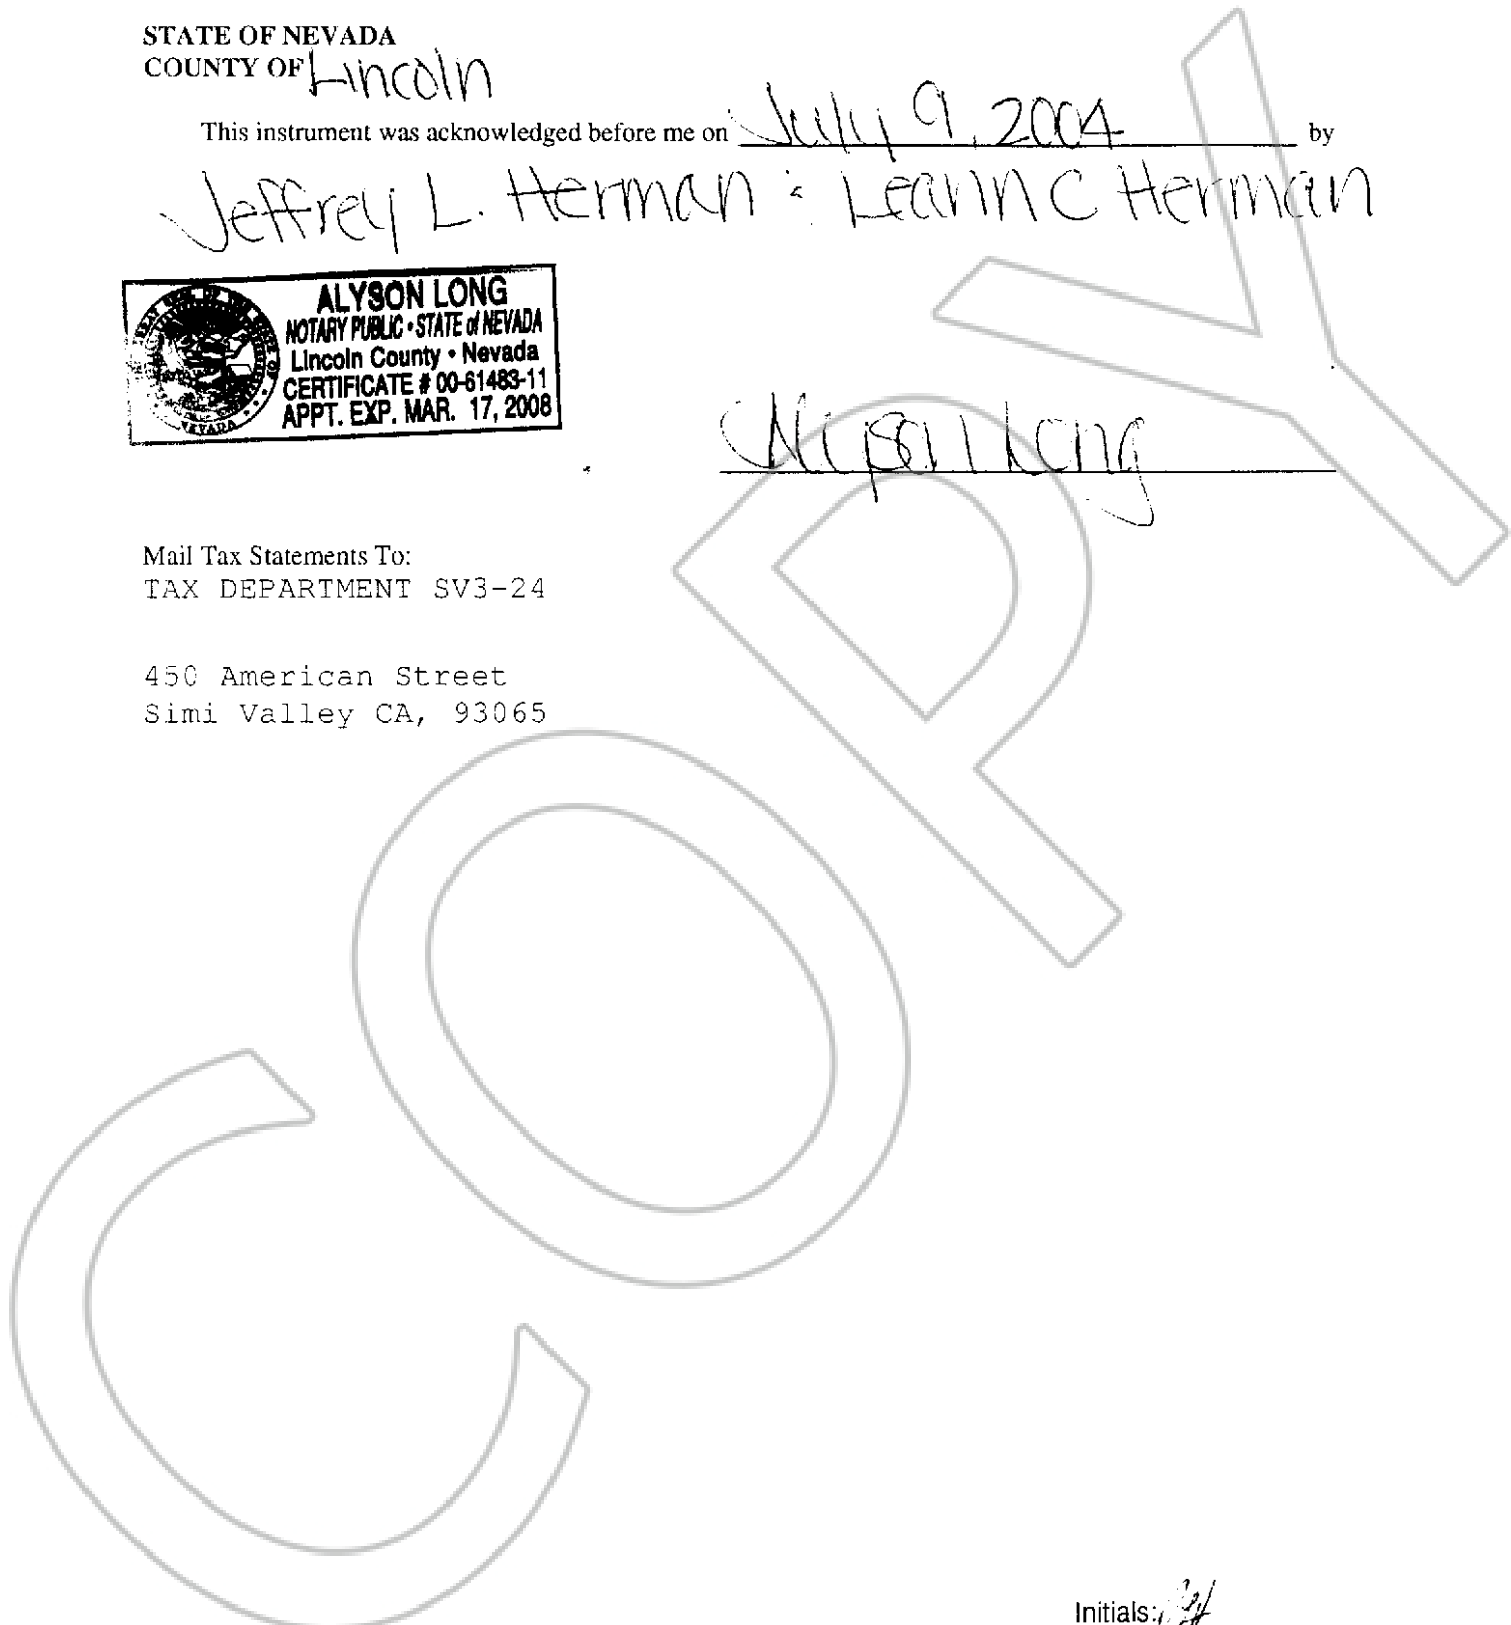 STATE OF NEVADA
COUNTY OF Lincoln
This instrument was acknowledged before me on July 9, 2004 by
Jeffrey L. Herman & Leann C Herman
ALYSON LONG
NOTARY PUBLIC • STATE of NEVADA
Lincoln County • Nevada
CERTIFICATE # 00-61483-11
APPT. EXP. MAR. 17, 2008
NEVADA
Alyson Long
Mail Tax Statements To:
TAX DEPARTMENT SV3-24
450 American Street
Simi Valley CA, 93065
COPY
Initials: